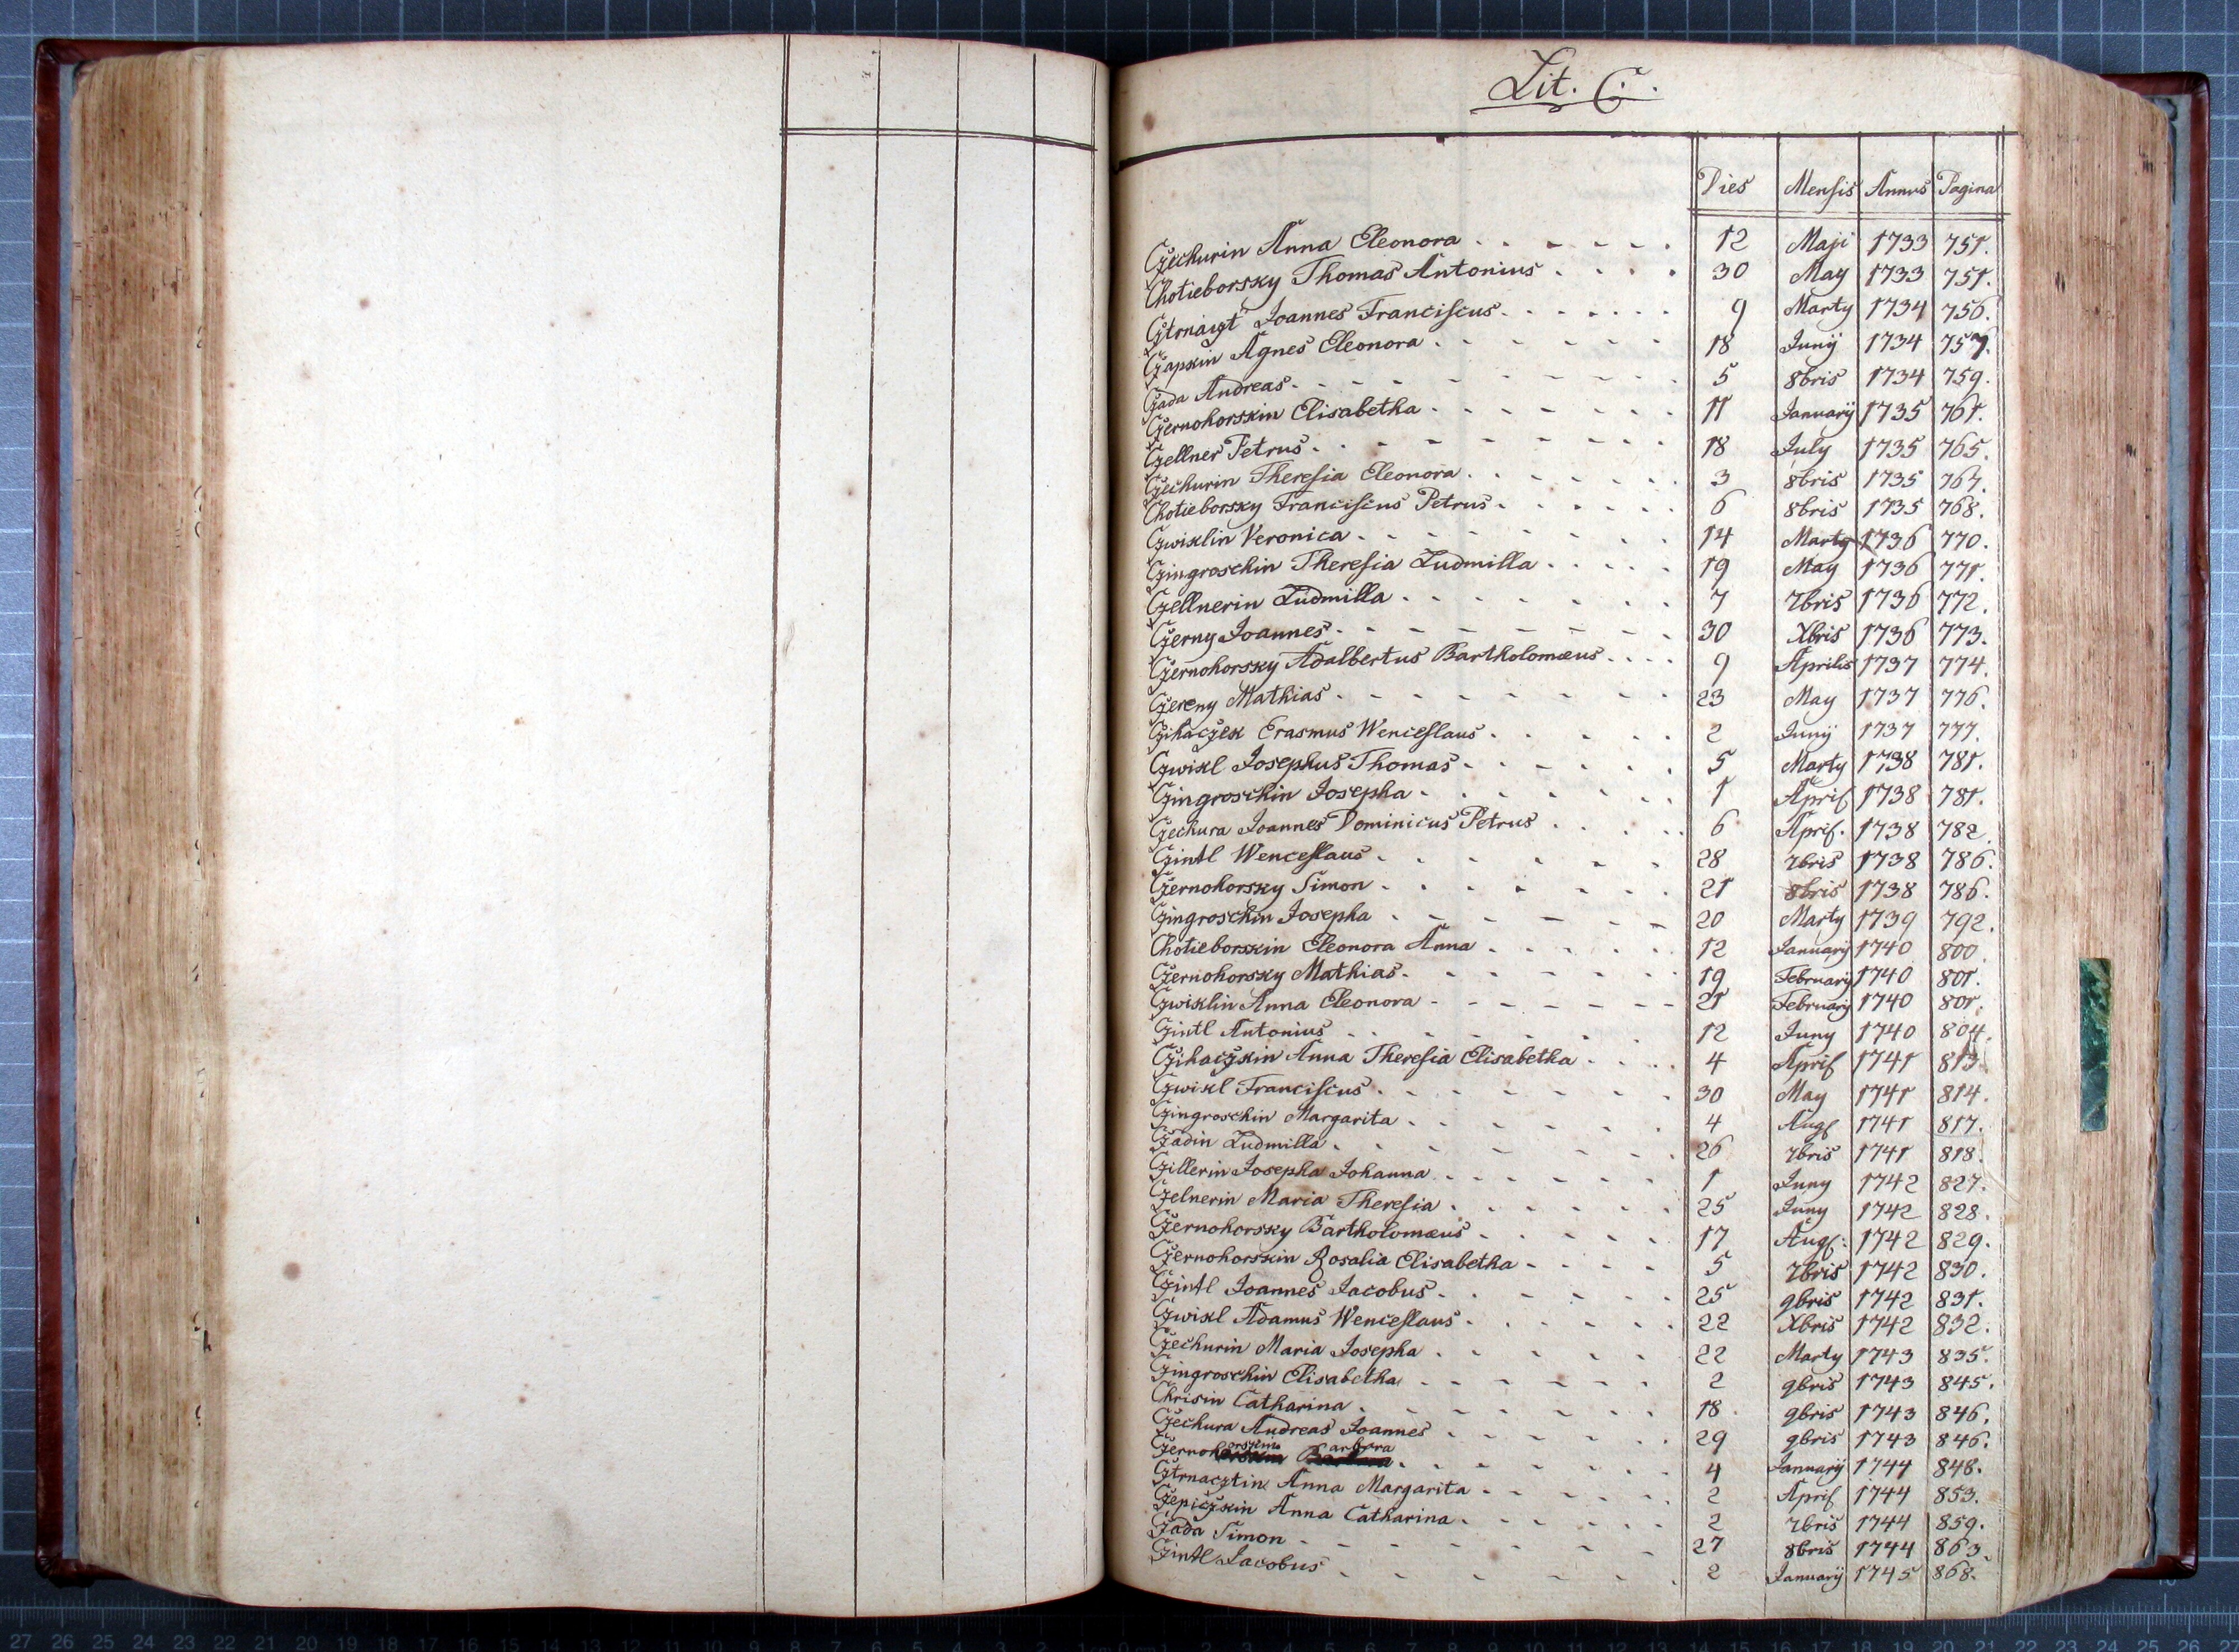 Lit. C.
Dies Mensis Annus Pagina
Czechurin Anna Eleonora 12 Maji 1733 751.
Chotieborsky Thomas Antonius 30 May 1733 751.
Cztrnaczt Joannes Franciscus 9 Marty 1734 756.
Czapkin Agnes Eleonora 18 Juny 1734 757.
Czada Andreas 5 8bris 1734 759.
Czernohorskin Elisabetha 11 January 1735 761.
Czellner Petrus 18 July 1735 765.
Czechurin Theresia Eleonora 3 8bris 1735 767.
Chotieborsky Franciscus Petrus 6 8bris 1735 768.
Czwiklin Veronica 14 Marty 1736 770.
Czingroschin Theresia Ludmilla 19 May 1736 771.
Czellnerin Ludmilla 7 7bris 1736 772.
Czerny Joannes 30 Xbris 1736 773.
Czernohorsky Adalbertus Bartholomæus 9 Aprilis 1737 774.
Czereny Mathias 23 May 1737 776.
Czihaczek Erasmus Wenceslaus 2 Juny 1737 777.
Czwikl Josephus Thomas 5 Marty 1738 781.
Czingroschin Josepha 1 April 1738 781.
Czechura Joannes Dominicus Petrus 6 April. 1738 782
Czintl Wenceslaus 28 7bris 1738 786.
Czernohorsky Simon 21 8bris 1738 786.
Czingroschin Josepha 20 Marty 1739 792.
Chotieborskin Eleonora Anna 12 January 1740 800.
Czernohorsky Mathias 19 February 1740 801.
Czwiklin Anna Eleonora 21 February 1740 801.
Czintl Antonius 12 Juny 1740 804.
Czihaczkin Anna Theresia Elisabetha 4 April 1741 813.
Czwikl Franciscus 30 May 1741 814.
Czingroschin Margarita 4 Aug 1741 817.
Czadin Ludmilla 26 7bris 1741 818.
Czillerin Josepha Johanna 1 Juny 1742 827.
Czelnerin Maria Theresia 25 Juny 1742 828.
Czernohorsky Bartholomæus 17 Aug: 1742 829.
Czernohorskin Rosalia Elisabetha 5 7bris 1742 830.
Czintl Joannes Jacobus 25 9bris 1742 831.
Czwikl Adamus Wenceslaus 22 Xbris 1742 832.
Czechurin Maria Josepha 22 Marty 1743 835.
Czingroschin Elisabetha 2 9bris 1743 845.
Chrisin Catharina 18 9bris 1743 846.
Czechura Andreas Joannes 29 9bris 1743 846.
Czernohorskin Barbara 4 January 1744 848.
Cztrnacztin Anna Margarita 2 April 1744 853.
Czepiczkin Anna Catharina 2 7bris 1744 859.
Czada Simon 27 8bris 1744 863.
Czintl Jacobus 2 January 1745 868.